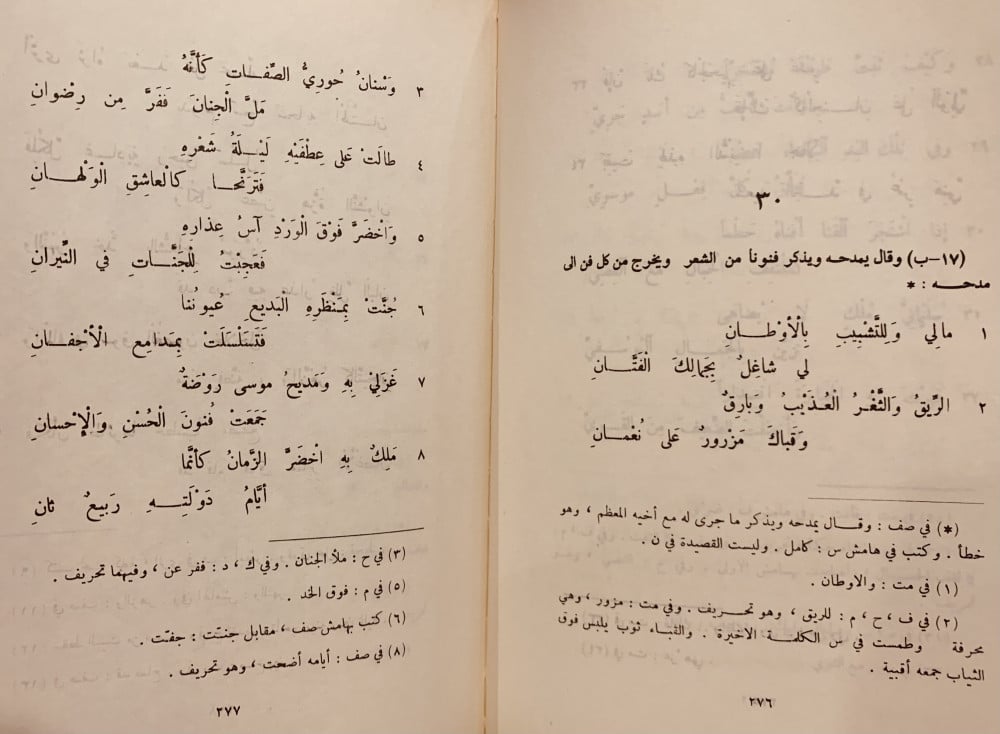 ٣٠
(١٧-ب) وقال يمدحه ويذكر فنوناً من الشعر ويخرج من كل فن الى
مدحـــه : *
١ مالي وَلِلتَّشْبيبِ بِالْأوْطــانِ
لي شاغِلٌ بِجَمالِكَ الْفَتَّــانِ
٢ الرِّيقُ وَالثَّغْـرُ الْعُـذَيْبُ وَبارِقٌ
وَقَباكَ مَزْرورٌ عَلى نُعْمــانِ
(*) في صف : وقــال يمدحه ويذكر ما جرى له مع أخيه المعظم ، وهو
خطأ . وكتب في هامش س : كامل . وليست القصيدة في ن .
(١) في مت : والاوطان .
(٢) في ف ، ح ، م : للريق ، وهو تحـريف . وفي مت : مزور ، وهي
محرفة وطمست في س الكلمـة الاخيرة . والقبـاء ثوب يلبس فوق
الثياب جمعه أقبية .
٢٧٦
٣ وَسْنانُ حُورِيُّ الصِّفــاتِ كَأنَّهُ
مَلَّ الْجِنانَ فَفَرَّ مِن رِضْوانِ
٤ طالَتْ عَلى عِطْفَيْهِ لَيْـلَةُ شَعْرِهِ
فَتَرَنَّحــا كالْعاشِقِ الْوَلْهــانِ
٥ وَاخْضَرَّ فَوْقَ الْوَرْدِ آسُ عِذارِهِ
فَعَجِبْتُ لِلْجَنَّــاتِ في النِّيرانِ
٦ جُنَّتْ بِمَنْظَرِهِ الْبَديعِ عُيونُنا
فَتَسَلْسَلَتْ بِمَدامِعِ الْأجْفــانِ
٧ غَزَلِيْ بِهِ وَمَديحُ موسى رَوْضَةٌ
جَمَعَتْ فُنونَ الْحُسْنِ وَالْإحْسانِ
٨ مَلِكٌ بِهِ اخْضَرَّ الزَّمانُ كَأنَّما
أيّامُ دَوْلَتِــهِ رَبيعٌ ثانِ
(٣) في ح : ملأ الجنان . وفي ك ، د : ففر عن ، وفيهما تحريف .
(٥) في م : فوق الخد .
(٦) كتب بهامش صف ، مقابل جنّت : جفّت .
(٨) في صف : أيامه أضحت ، وهو تحريف .
٢٧٧